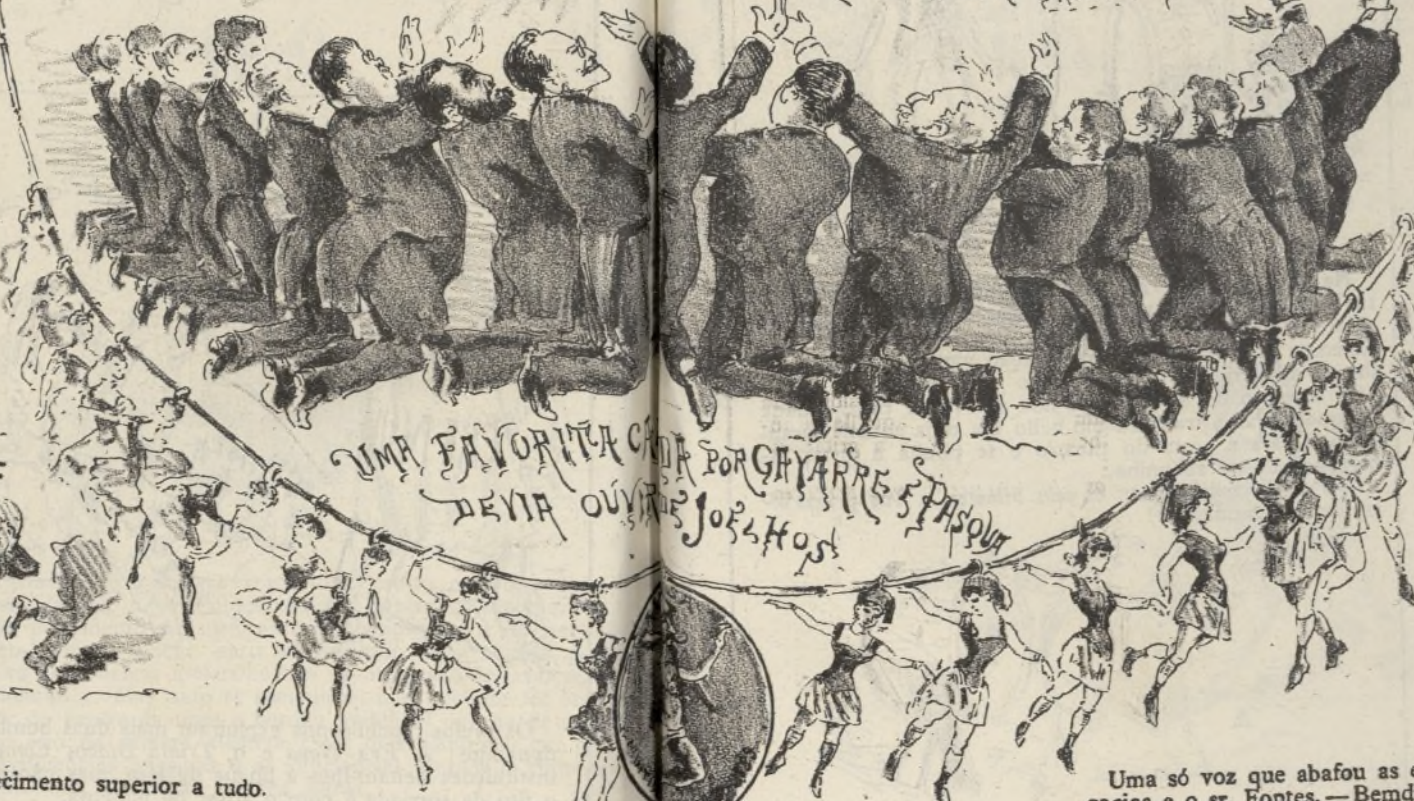 UMA FAVORITA CA DA POR GAYARRE E PASQUA
DEVIA OUVIR DE JOELHOS
cimento superior a tudo.
Uma só voz que abafou as
e o sr. Fontes. — Bemd